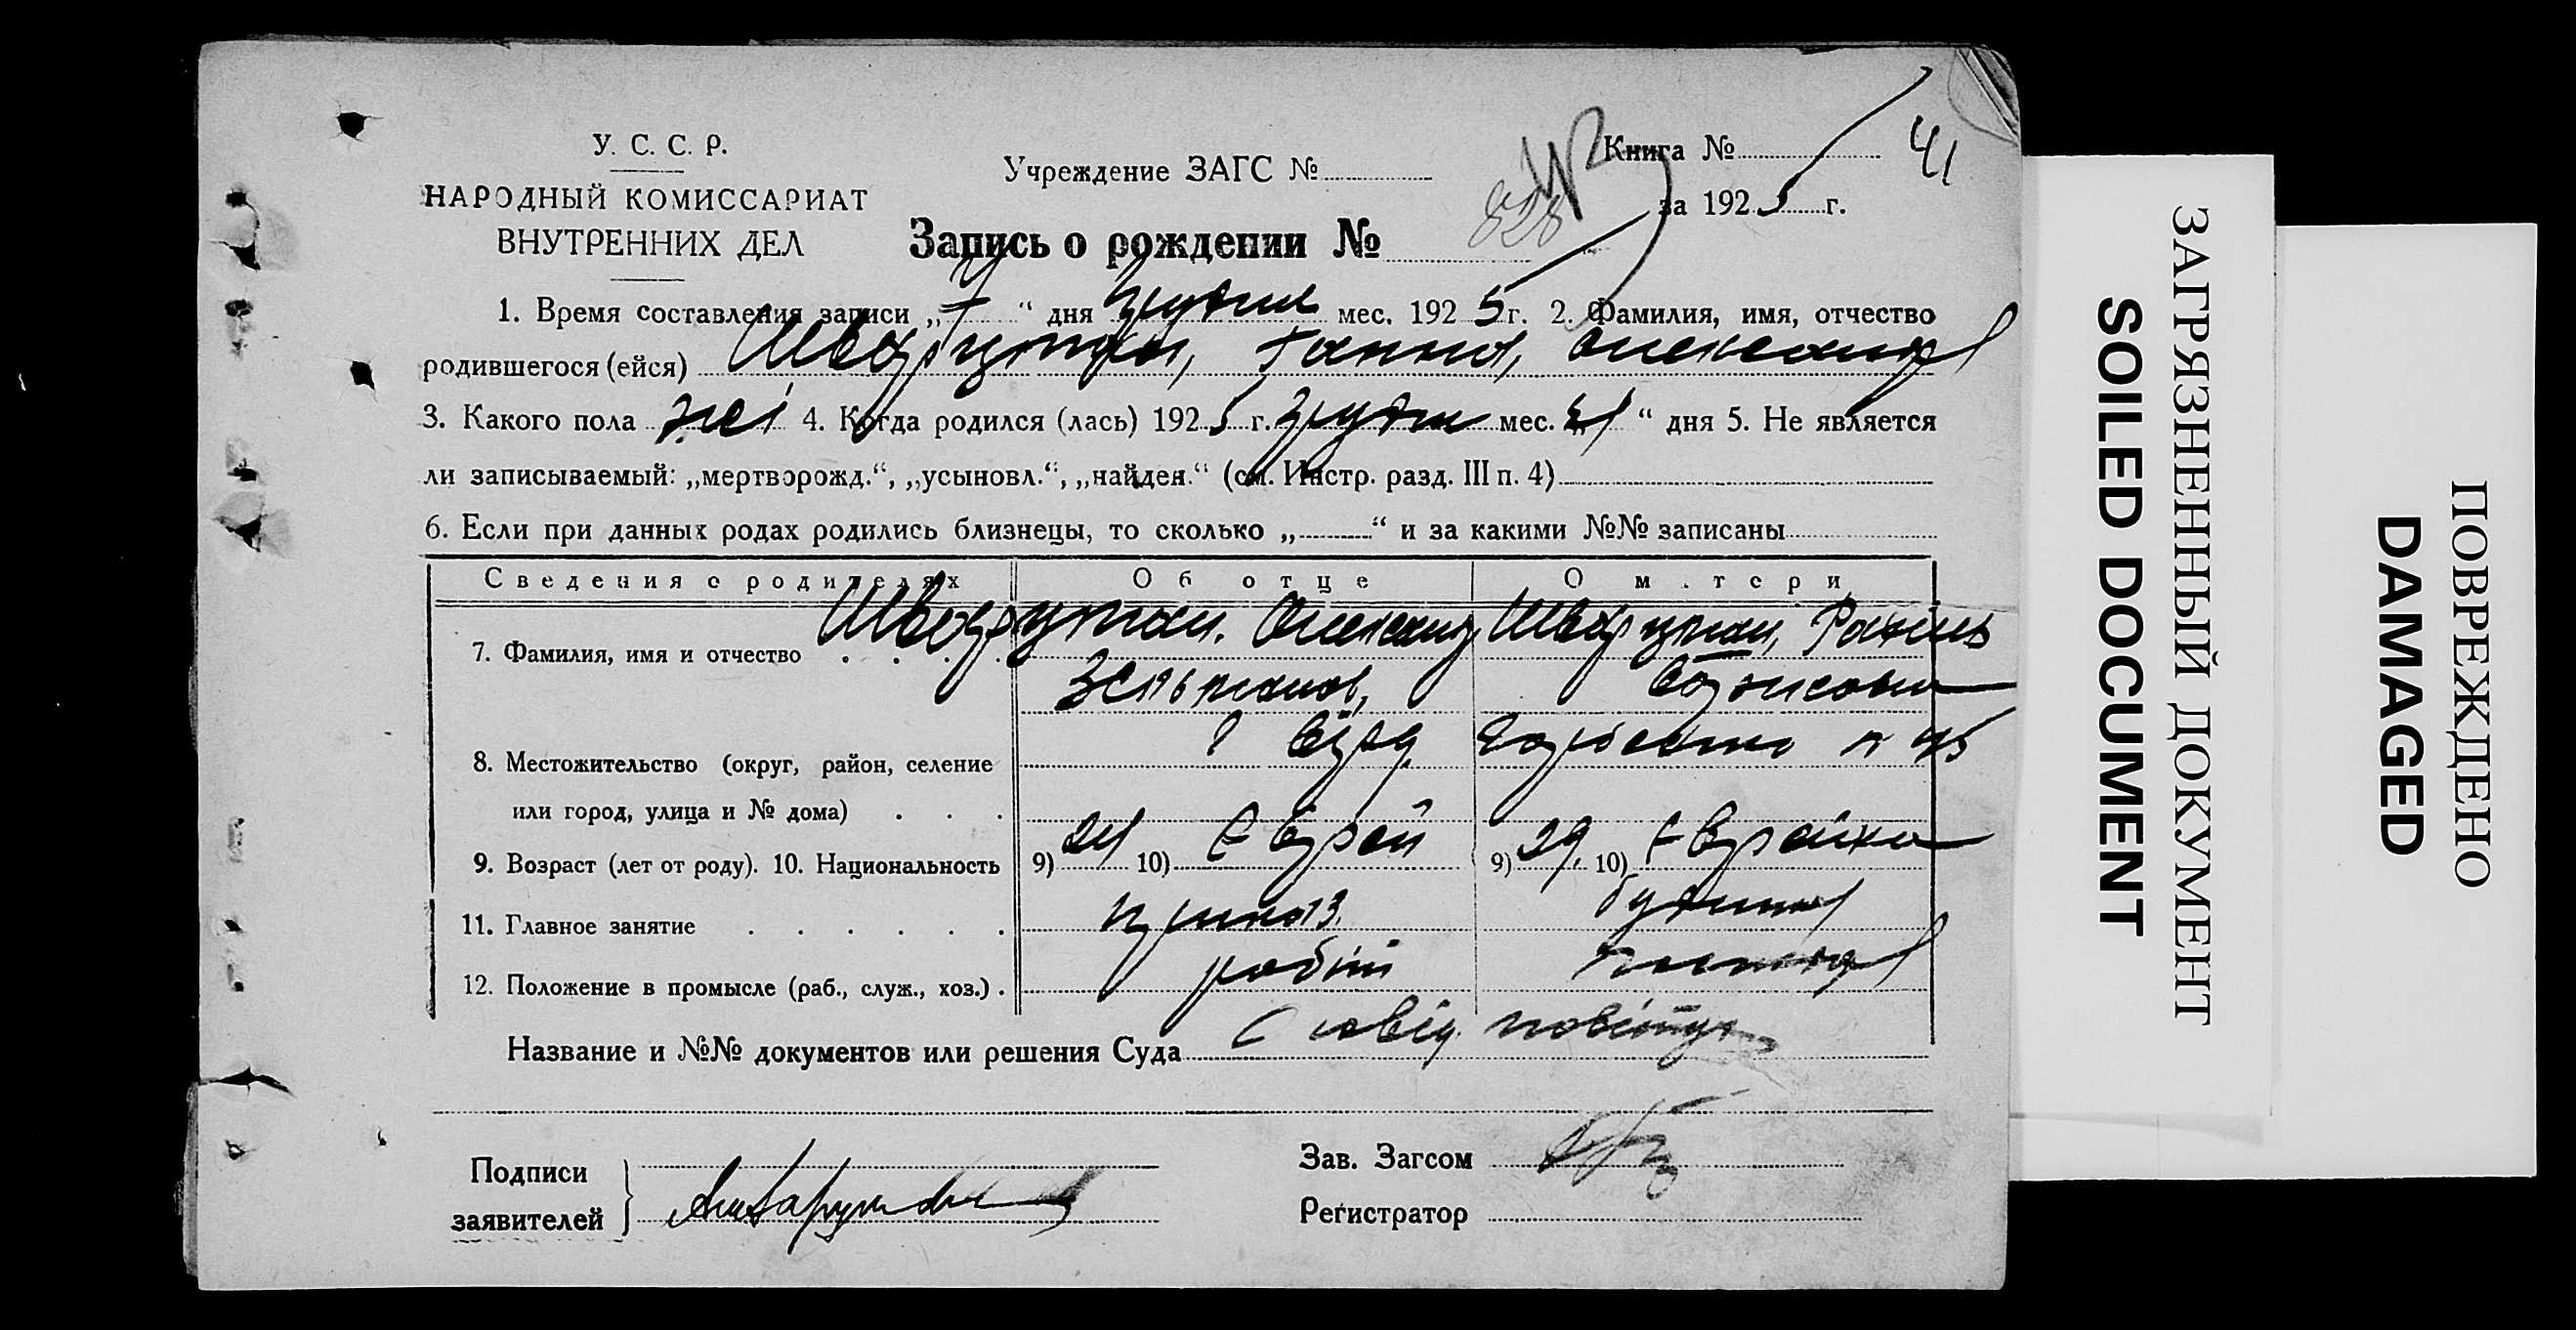 У. С. С. Р.
НАРОДНЫЙ КОМИССАРИАТ
ВНУТРЕННИХ ДЕЛ
Учреждение ЗАГС №
Книга №
41
за 1925 г.
828
Запись о рождении №
1. Время составления записи „7“ дня грудня мес. 1925 г. 2. Фамилия, имя, отчество
родившегося (ейся) Шварцман, Ганна, Олександр
3. Какого пола жі 4. Когда родился (лась) 1925 г. грудн мес. „1“ дня 5. Не является
ли записываемый: „мертворожд.“, „усыновл.“, „найден.“ (см. Инстр. разд. III п. 4)
6. Если при данных родах родились близнецы, то сколько „ “ и за какими №№ записаны
Сведения о родителях Об отце О м.тери
7. Фамилия, имя и отчество Шварцман. Олександ Шварцман, Рахиль
Зельманов,
8. Местожительство (округ, район, селение
или город, улица и № дома)
9. Возраст (лет от роду). 10. Национальность 9) 24 10) Єврей 9) 29. 10) Єврейка
11. Главное занятие
12. Положение в промысле (раб., служ., хоз.) робіт
Название и №№ документов или решения Суда
Подписи
заявителей
Зав. Загсом
Регистратор
ЗАГРЯЗНЕННЫЙ ДОКУМЕНТ
SOILED DOCUMENT
ПОВРЕЖДЕНО
DAMAGED